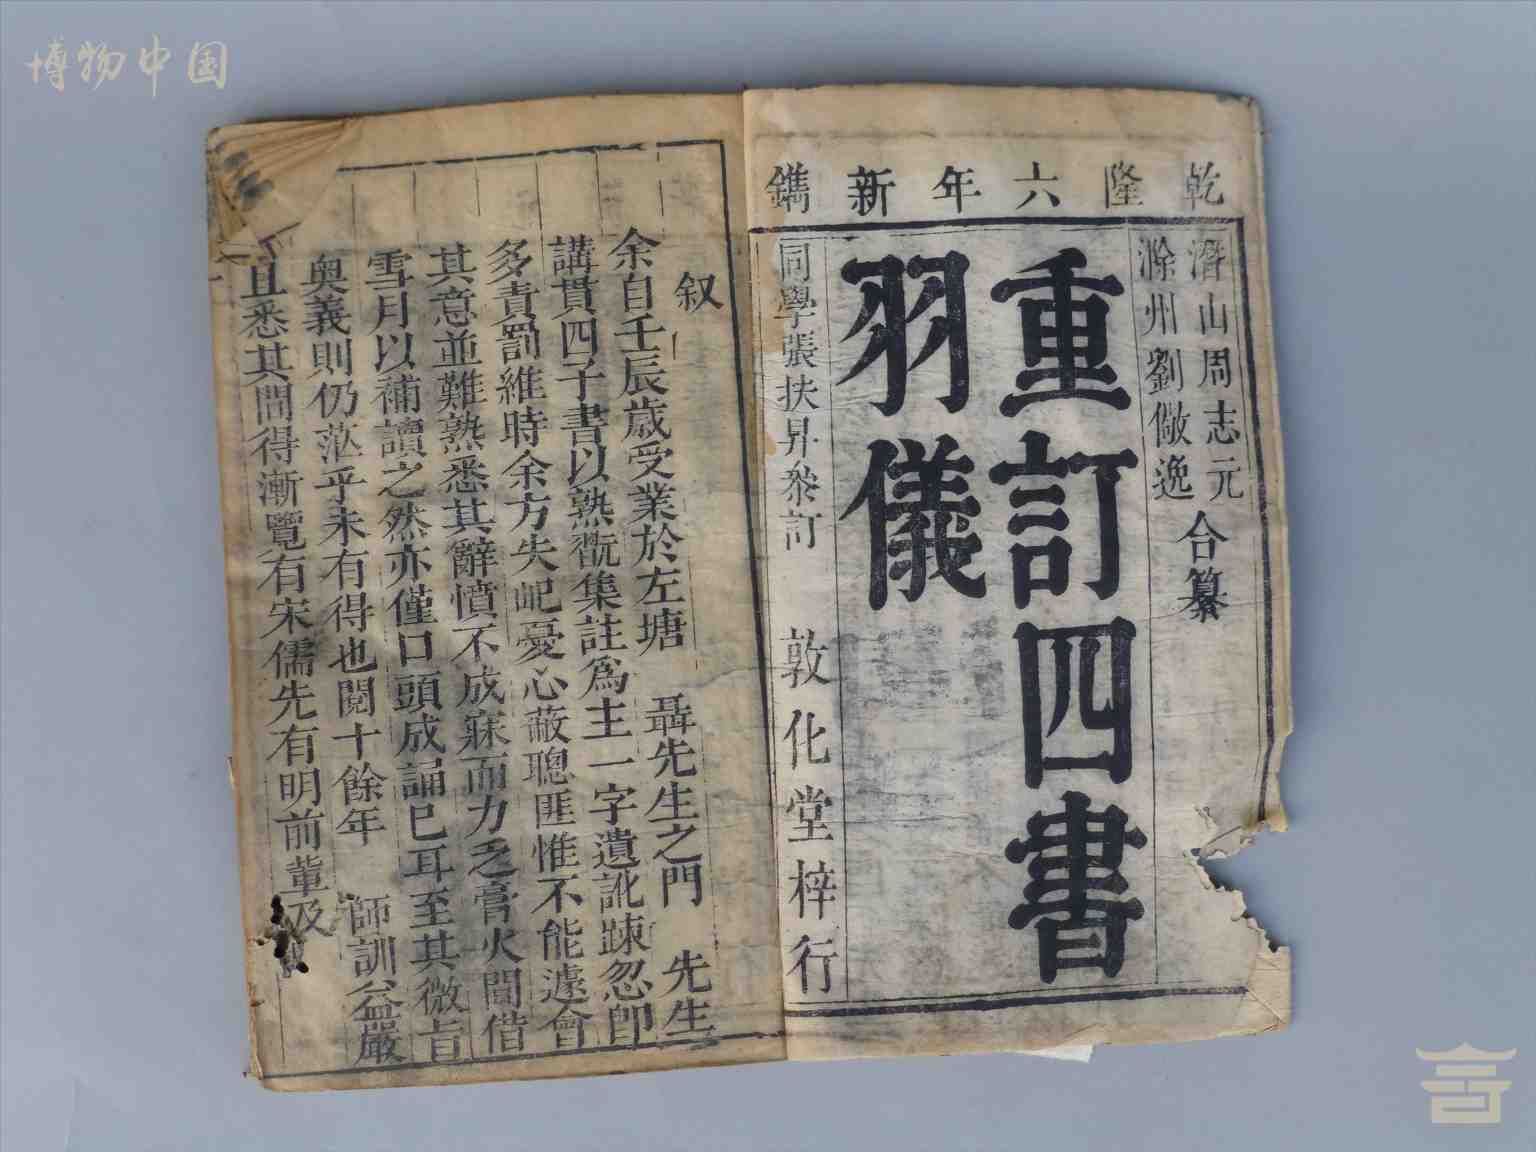 博物中国
乾隆六年新鐫
潛山周志元
滁州劉儆逸
合纂
重訂四書
羽儀
同學張扶昇叅訂
敦化堂梓行
叙
余自壬辰歲受業於左塘 聶先生之門 先生
講貫四子書以熟翫集註爲主一字遺訛踈忽卽
多責罰維時余方失岵憂心蔽聰匪惟不能遽會
其意並難熟悉其辭憤不成寐而力乏膏火閒借
雪月以補讀之然亦僅口頭成誦已耳至其微旨
奥義則仍茫乎未有得也閱十餘年 師訓益嚴
且悉其間得漸覽有宋儒先有明前輩及